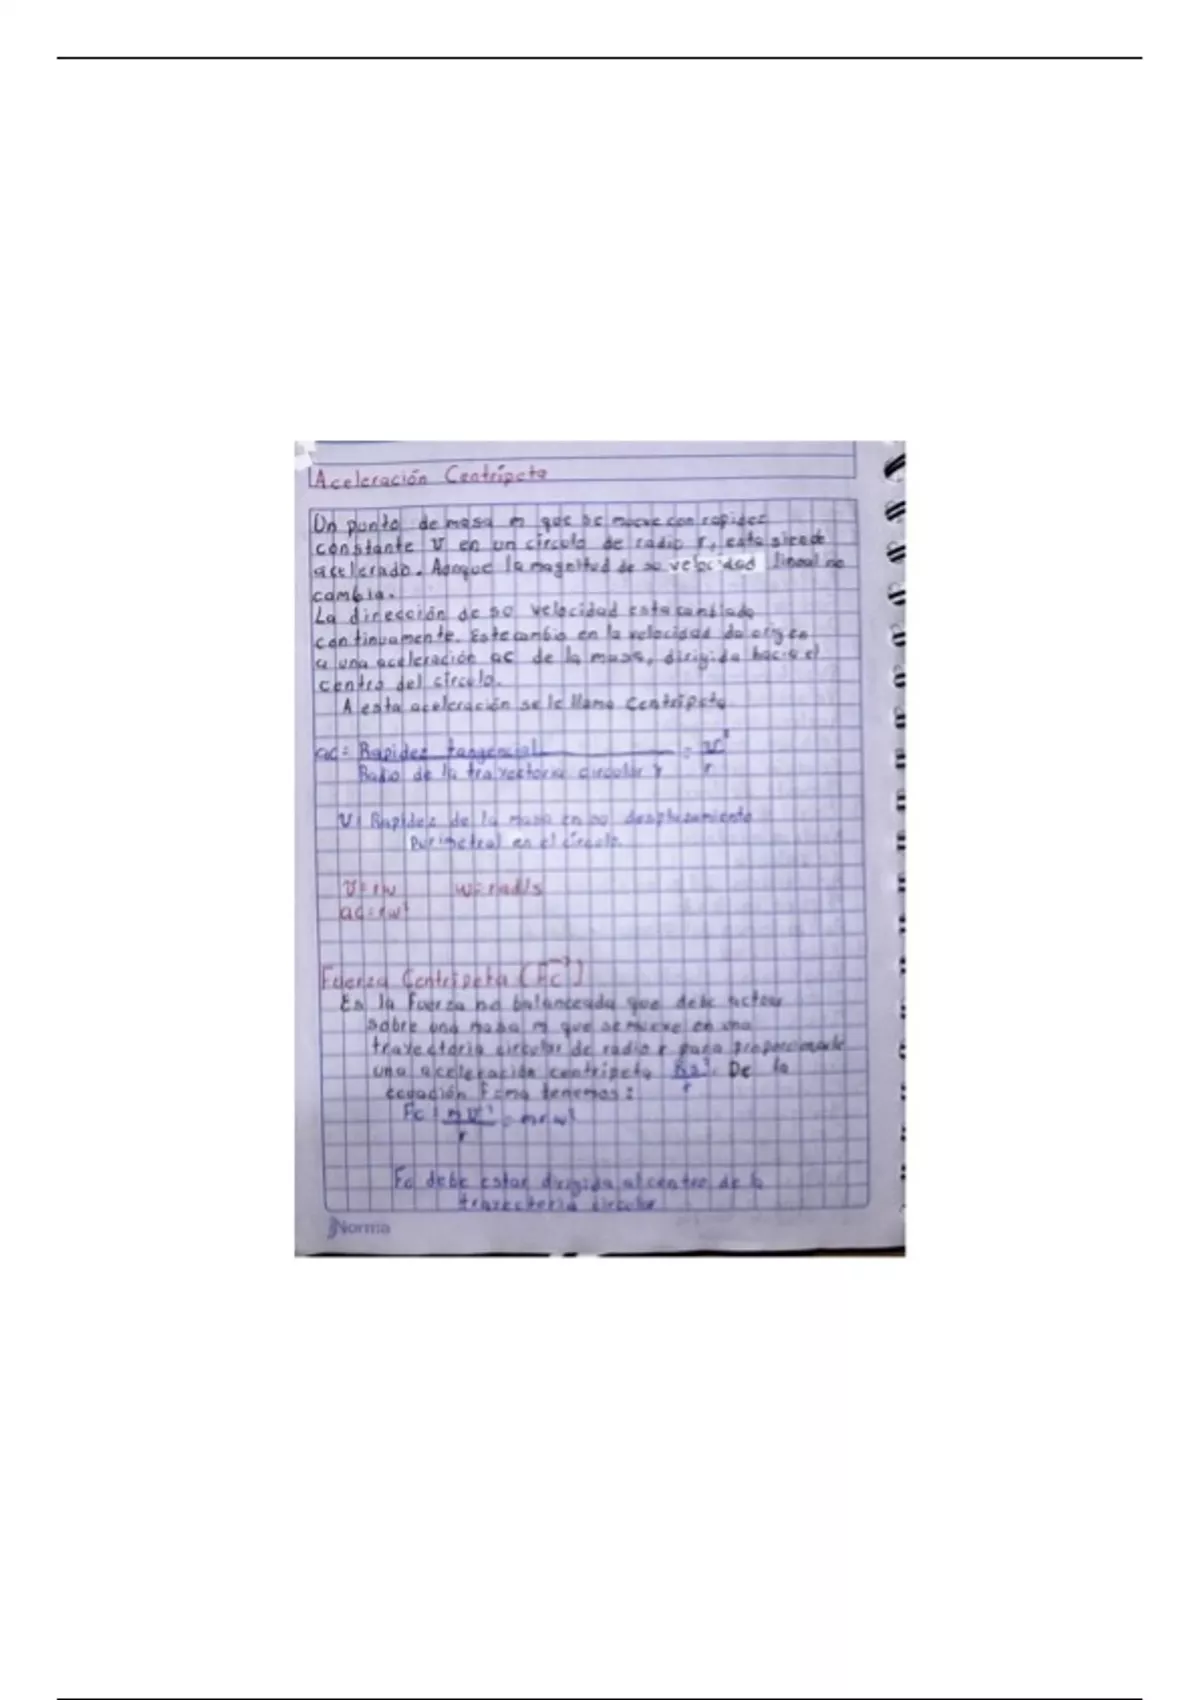 Aceleración Centrípeta
Un punto de masa m que se mueve con rapidez
constante V en un círculo de radio r, esta siendo
acelerado. Aunque la magnitud de su velocidad lineal no
cambia.
La dirección de su velocidad esta cambiado
continuamente. Este cambio en la velocidad da origen
a una aceleración ac de la masa, dirigida hacia el
centro del círculo.
A esta aceleración se le llama Centrípeta
ac = Rapidez tangencial = v²
Radio de la trayectoria circular r r
V: Rapidez de la masa en su desplazamiento
perimetral en el círculo.
V = rw w = rad/s
ac = rw²
Fuerza Centrípeta (Fc)
Es la fuerza no balanceada que debe actuar
sobre una masa m que se mueve en una
trayectoria circular de radio r para proporcionarle
una aceleración centripeta De la
r
ecuación F = ma tenemos:
Fc = m v² = mrw²
r
Fc debe estar dirigida al centro de la
trayectoria circular
Norma